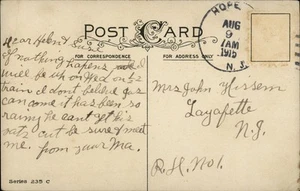 POST CARD
FOR CORRESPONDENCE
FOR ADDRESS ONLY
HOPE
AUG
9
AM
1915
N.J.
Dear Helen & Susie
if nothing happens
will be up on Wed on 12
train I dont believe Gus
can come it has been so
rainy he cant get his
oats cut be sure & meet
me. from your Ma.
Mrs John Hissem
Lafayette
N.J.
R.H. No1.
Series 235 C